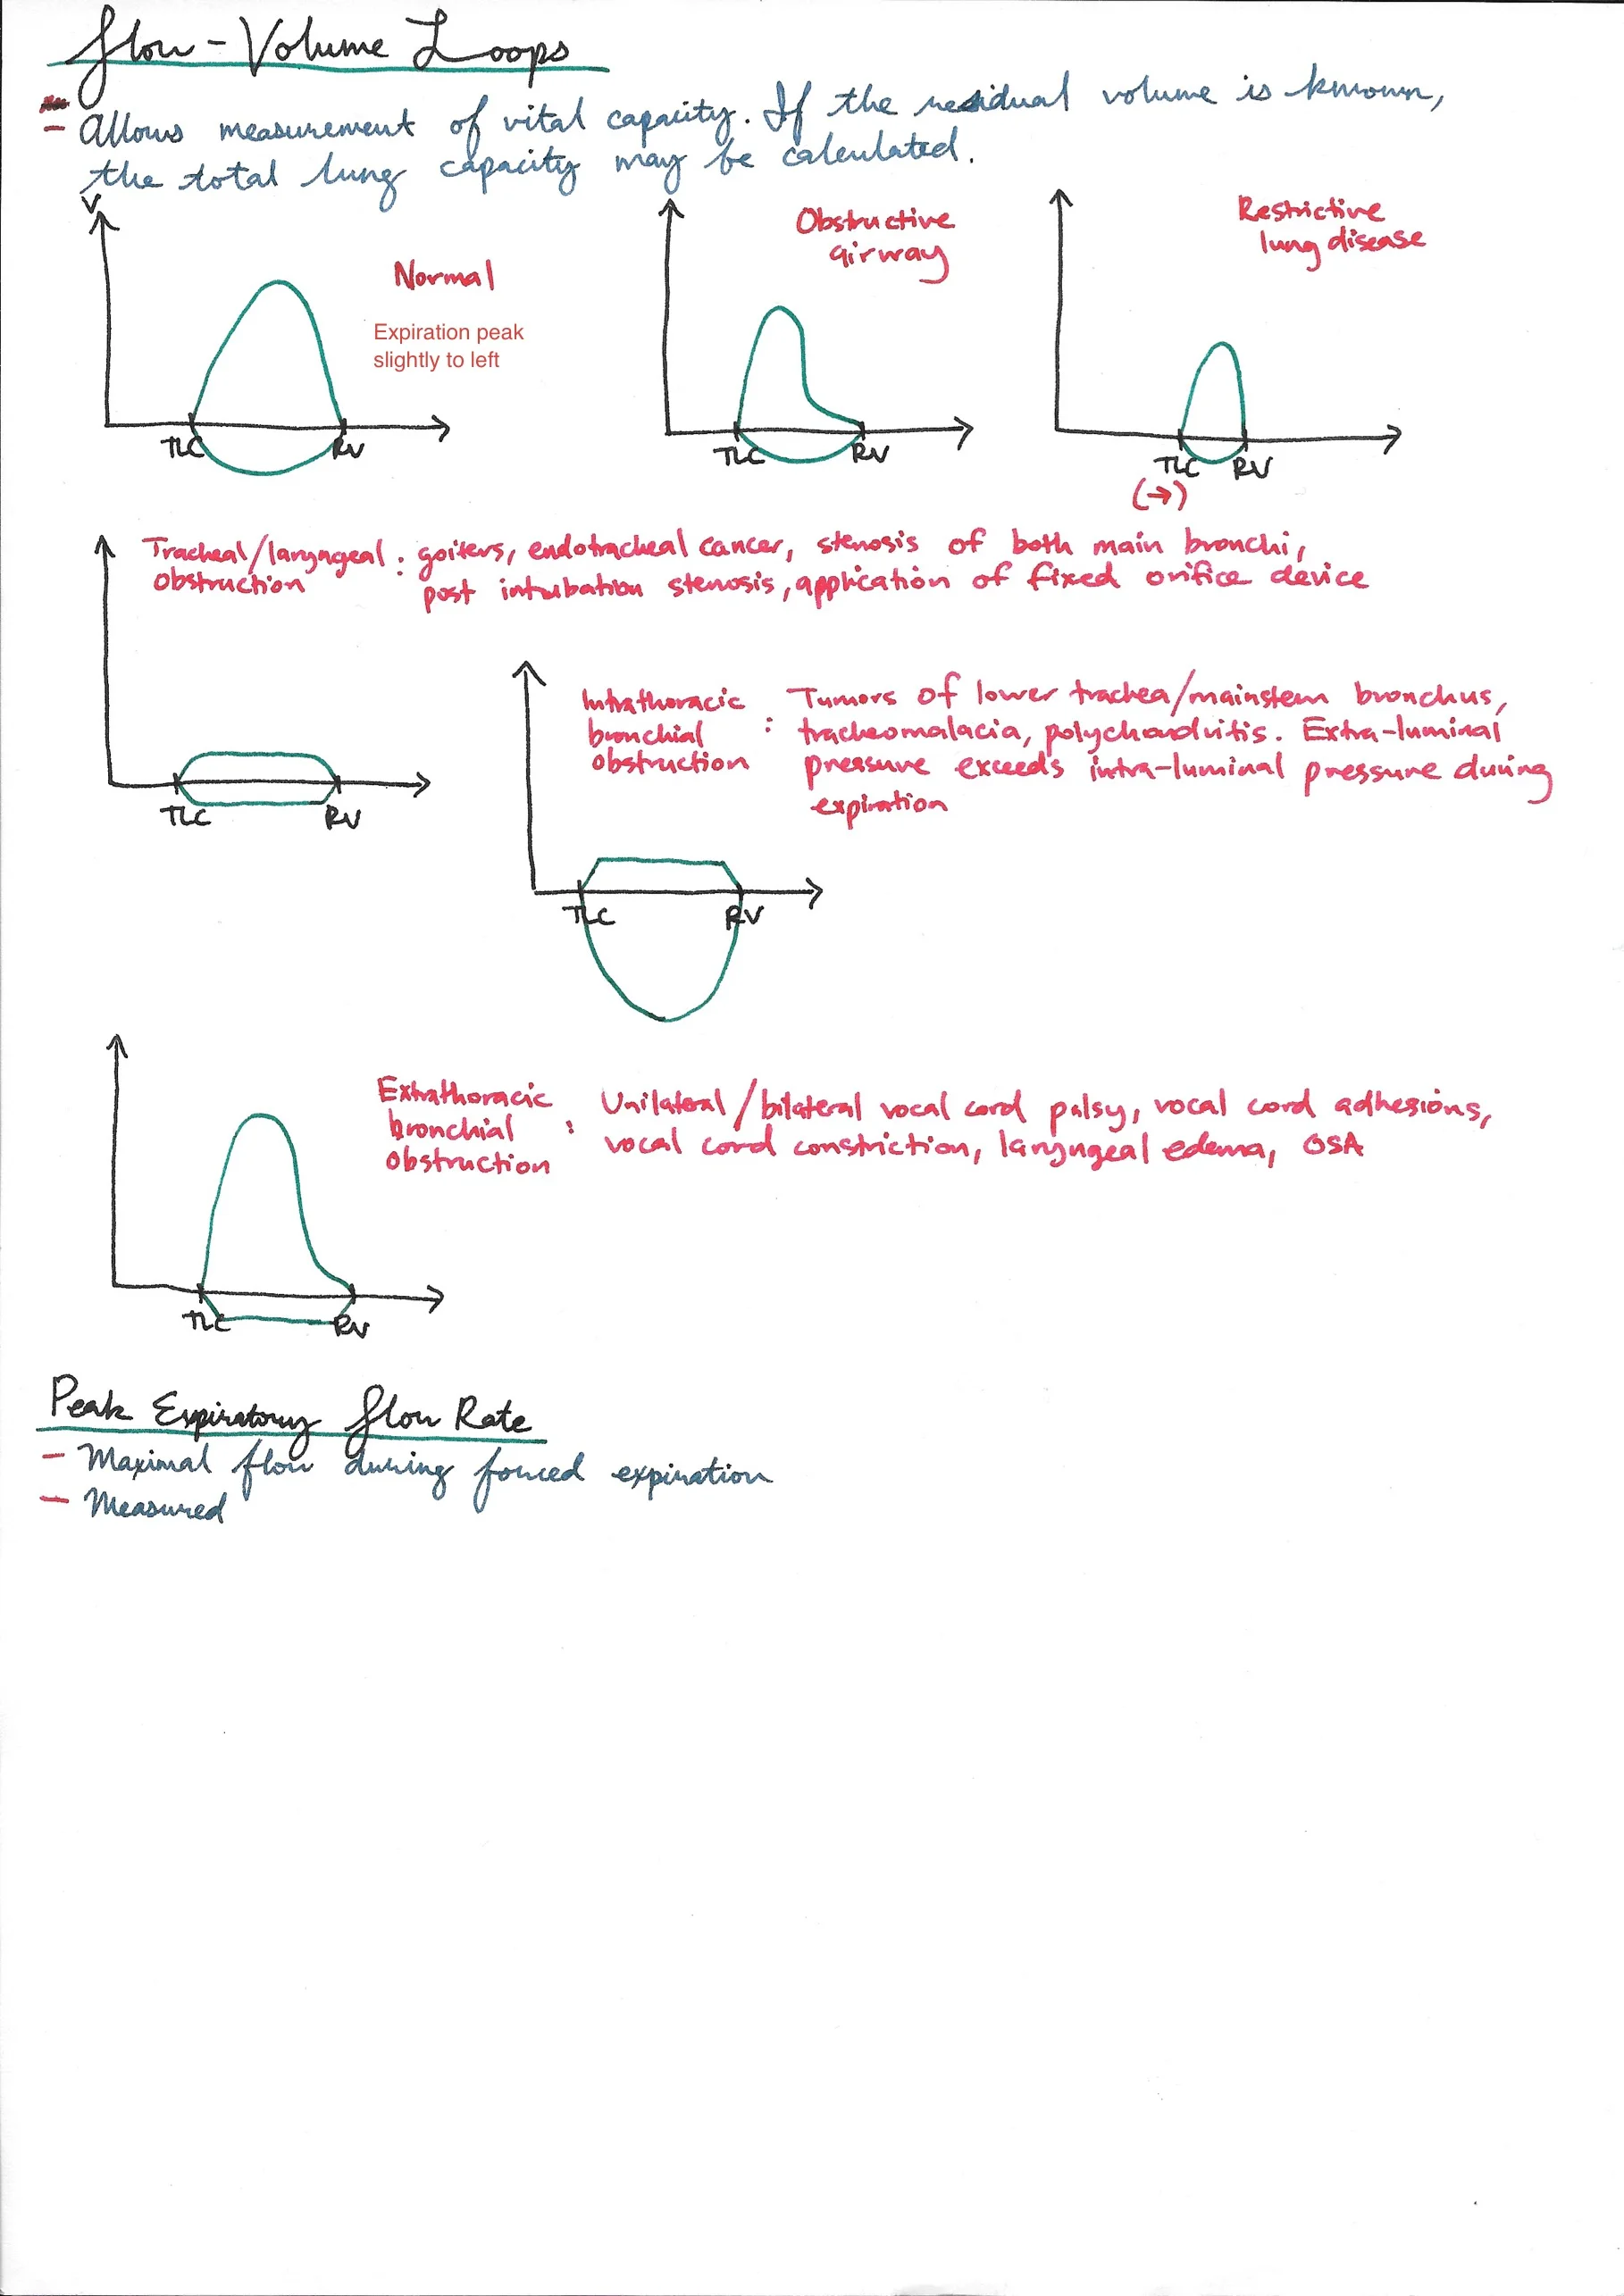 Flow-Volume Loops
- Allows measurement of vital capacity. If the residual volume is known,
the total lung capacity may be calculated.
V
Normal
Expiration peak
slightly to left
TLC RV
Obstructive
airway
TLC RV
Restrictive
lung disease
TLC RV
(→)
Tracheal/laryngeal : goiters, endotracheal cancer, stenosis of both main bronchi,
obstruction post intubation stenosis, application of fixed orifice device
TLC RV
Intrathoracic : Tumors of lower trachea/mainstem bronchus,
bronchial tracheomalacia, polychondritis. Extra-luminal
obstruction pressure exceeds intra-luminal pressure during
expiration
TLC RV
Extrathoracic : Unilateral/bilateral vocal cord palsy, vocal cord adhesions,
bronchial vocal cord constriction, laryngeal edema, OSA
obstruction
TLC RV
Peak Expiratory Flow Rate
- Maximal flow during forced expiration
- Measured